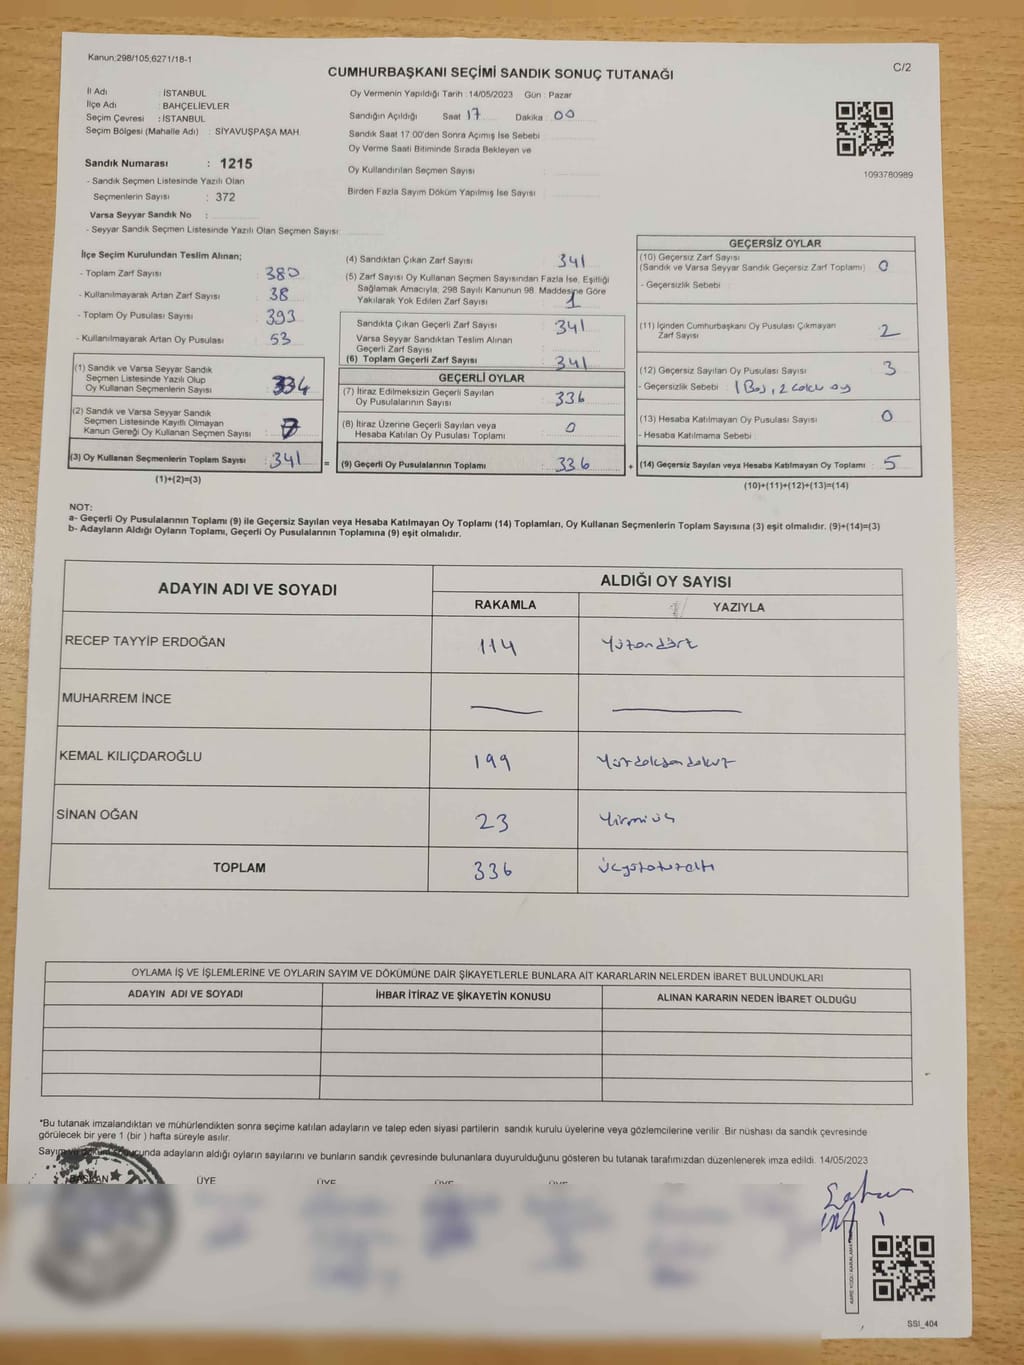 Kanun:298/105;6271/18-1
C/2
CUMHURBAŞKANI SEÇİMİ SANDIK SONUÇ TUTANAĞI
İl Adı : İSTANBUL
İlçe Adı : BAHÇELİEVLER
Seçim Çevresi : İSTANBUL
Seçim Bölgesi (Mahalle Adı) : SİYAVUŞPAŞA MAH.
Sandık Numarası : 1215
- Sandık Seçmen Listesinde Yazılı Olan
Seçmenlerin Sayısı : 372
Varsa Seyyar Sandık No :
- Seyyar Sandık Seçmen Listesinde Yazılı Olan Seçmen Sayısı:
Oy Vermenin Yapıldığı Tarih : 14/05/2023 Gün : Pazar
Sandığın Açıldığı Saat 17 Dakika 00
Sandık Saat 17:00'den Sonra Açımış İse Sebebi
Oy Verme Saati Bitiminde Sırada Bekleyen ve
Oy Kullandırılan Seçmen Sayısı
Birden Fazla Sayım Döküm Yapılmış İse Sayısı
1093780989
İlçe Seçim Kurulundan Teslim Alınan;
- Toplam Zarf Sayısı : 380
- Kullanılmayarak Artan Zarf Sayısı : 38
- Toplam Oy Pusulası Sayısı : 393
- Kullanılmayarak Artan Oy Pusulası : 53
(1) Sandık ve Varsa Seyyar Sandık
Seçmen Listesinde Yazılı Olup
Oy Kullanan Seçmenlerin Sayısı : 334
(2) Sandık ve Varsa Seyyar Sandık
Seçmen Listesinde Kayıtlı Olmayan
Kanun Gereği Oy Kullanan Seçmen Sayısı : 7
(3) Oy Kullanan Seçmenlerin Toplam Sayısı : 341
(1)+(2)=(3)
(4) Sandıktan Çıkan Zarf Sayısı 341
(5) Zarf Sayısı Oy Kullanan Seçmen Sayısından Fazla İse, Eşitliği
Sağlamak Amacıyla, 298 Sayılı Kanunun 98. Maddesine Göre
Yakılarak Yok Edilen Zarf Sayısı 1
Sandıkta Çıkan Geçerli Zarf Sayısı 341
Varsa Seyyar Sandıktan Teslim Alınan
Geçerli Zarf Sayısı
(6) Toplam Geçerli Zarf Sayısı 341
GEÇERLİ OYLAR
(7) İtiraz Edilmeksizin Geçerli Sayılan
Oy Pusulalarının Sayısı 336
(8) İtiraz Üzerine Geçerli Sayılan veya
Hesaba Katılan Oy Pusulası Toplamı 0
= (9) Geçerli Oy Pusulalarının Toplamı 336
GEÇERSİZ OYLAR
(10) Geçersiz Zarf Sayısı
(Sandık ve Varsa Seyyar Sandık Geçersiz Zarf Toplamı) 0
- Geçersizlik Sebebi :
(11) İçinden Cumhurbaşkanı Oy Pusulası Çıkmayan
Zarf Sayısı 2
(12) Geçersiz Sayılan Oy Pusulası Sayısı 3
- Geçersizlik Sebebi : 1 Boş, 2 oy
(13) Hesaba Katılmayan Oy Pusulası Sayısı 0
- Hesaba Katılmama Sebebi
+ (14) Geçersiz Sayılan veya Hesaba Katılmayan Oy Toplamı : 5
(10)+(11)+(12)+(13)=(14)
NOT:
a- Geçerli Oy Pusulalarının Toplamı (9) ile Geçersiz Sayılan veya Hesaba Katılmayan Oy Toplamı (14) Toplamları, Oy Kullanan Seçmenlerin Toplam Sayısına (3) eşit olmalıdır. (9)+(14)=(3)
b- Adayların Aldığı Oyların Toplamı, Geçerli Oy Pusulalarının Toplamına (9) eşit olmalıdır.
ADAYIN ADI VE SOYADI
ALDIĞI OY SAYISI
RAKAMLA YAZIYLA
RECEP TAYYİP ERDOĞAN 114 Yüzondört
MUHARREM İNCE
KEMAL KILIÇDAROĞLU 199 Yüzdoksandokuz
SİNAN OĞAN 23 Yirmiüç
TOPLAM 336 Üçyüzotuzaltı
OYLAMA İŞ VE İŞLEMLERİNE VE OYLARIN SAYIM VE DÖKÜMÜNE DAİR ŞİKAYETLERLE BUNLARA AİT KARARLARIN NELERDEN İBARET BULUNDUKLARI
ADAYIN ADI VE SOYADI İHBAR İTİRAZ VE ŞİKAYETİN KONUSU ALINAN KARARIN NEDEN İBARET OLDUĞU
*Bu tutanak imzalandıktan ve mühürlendikten sonra seçime katılan adayların ve talep eden siyasi partilerin sandık kurulu üyelerine veya gözlemcilerine verilir .Bir nüshası da sandık çevresinde
görülecek bir yere 1 (bir ) hafta süreyle asılır.
Sayım ve döküm sonucunda adayların aldığı oyların sayılarını ve bunların sandık çevresinde bulunanlara duyurulduğunu gösteren bu tutanak tarafımızdan düzenlenerek imza edildi. 14/05/2023
BAŞKAN ÜYE ÜYE ÜYE ÜYE
SSI_404